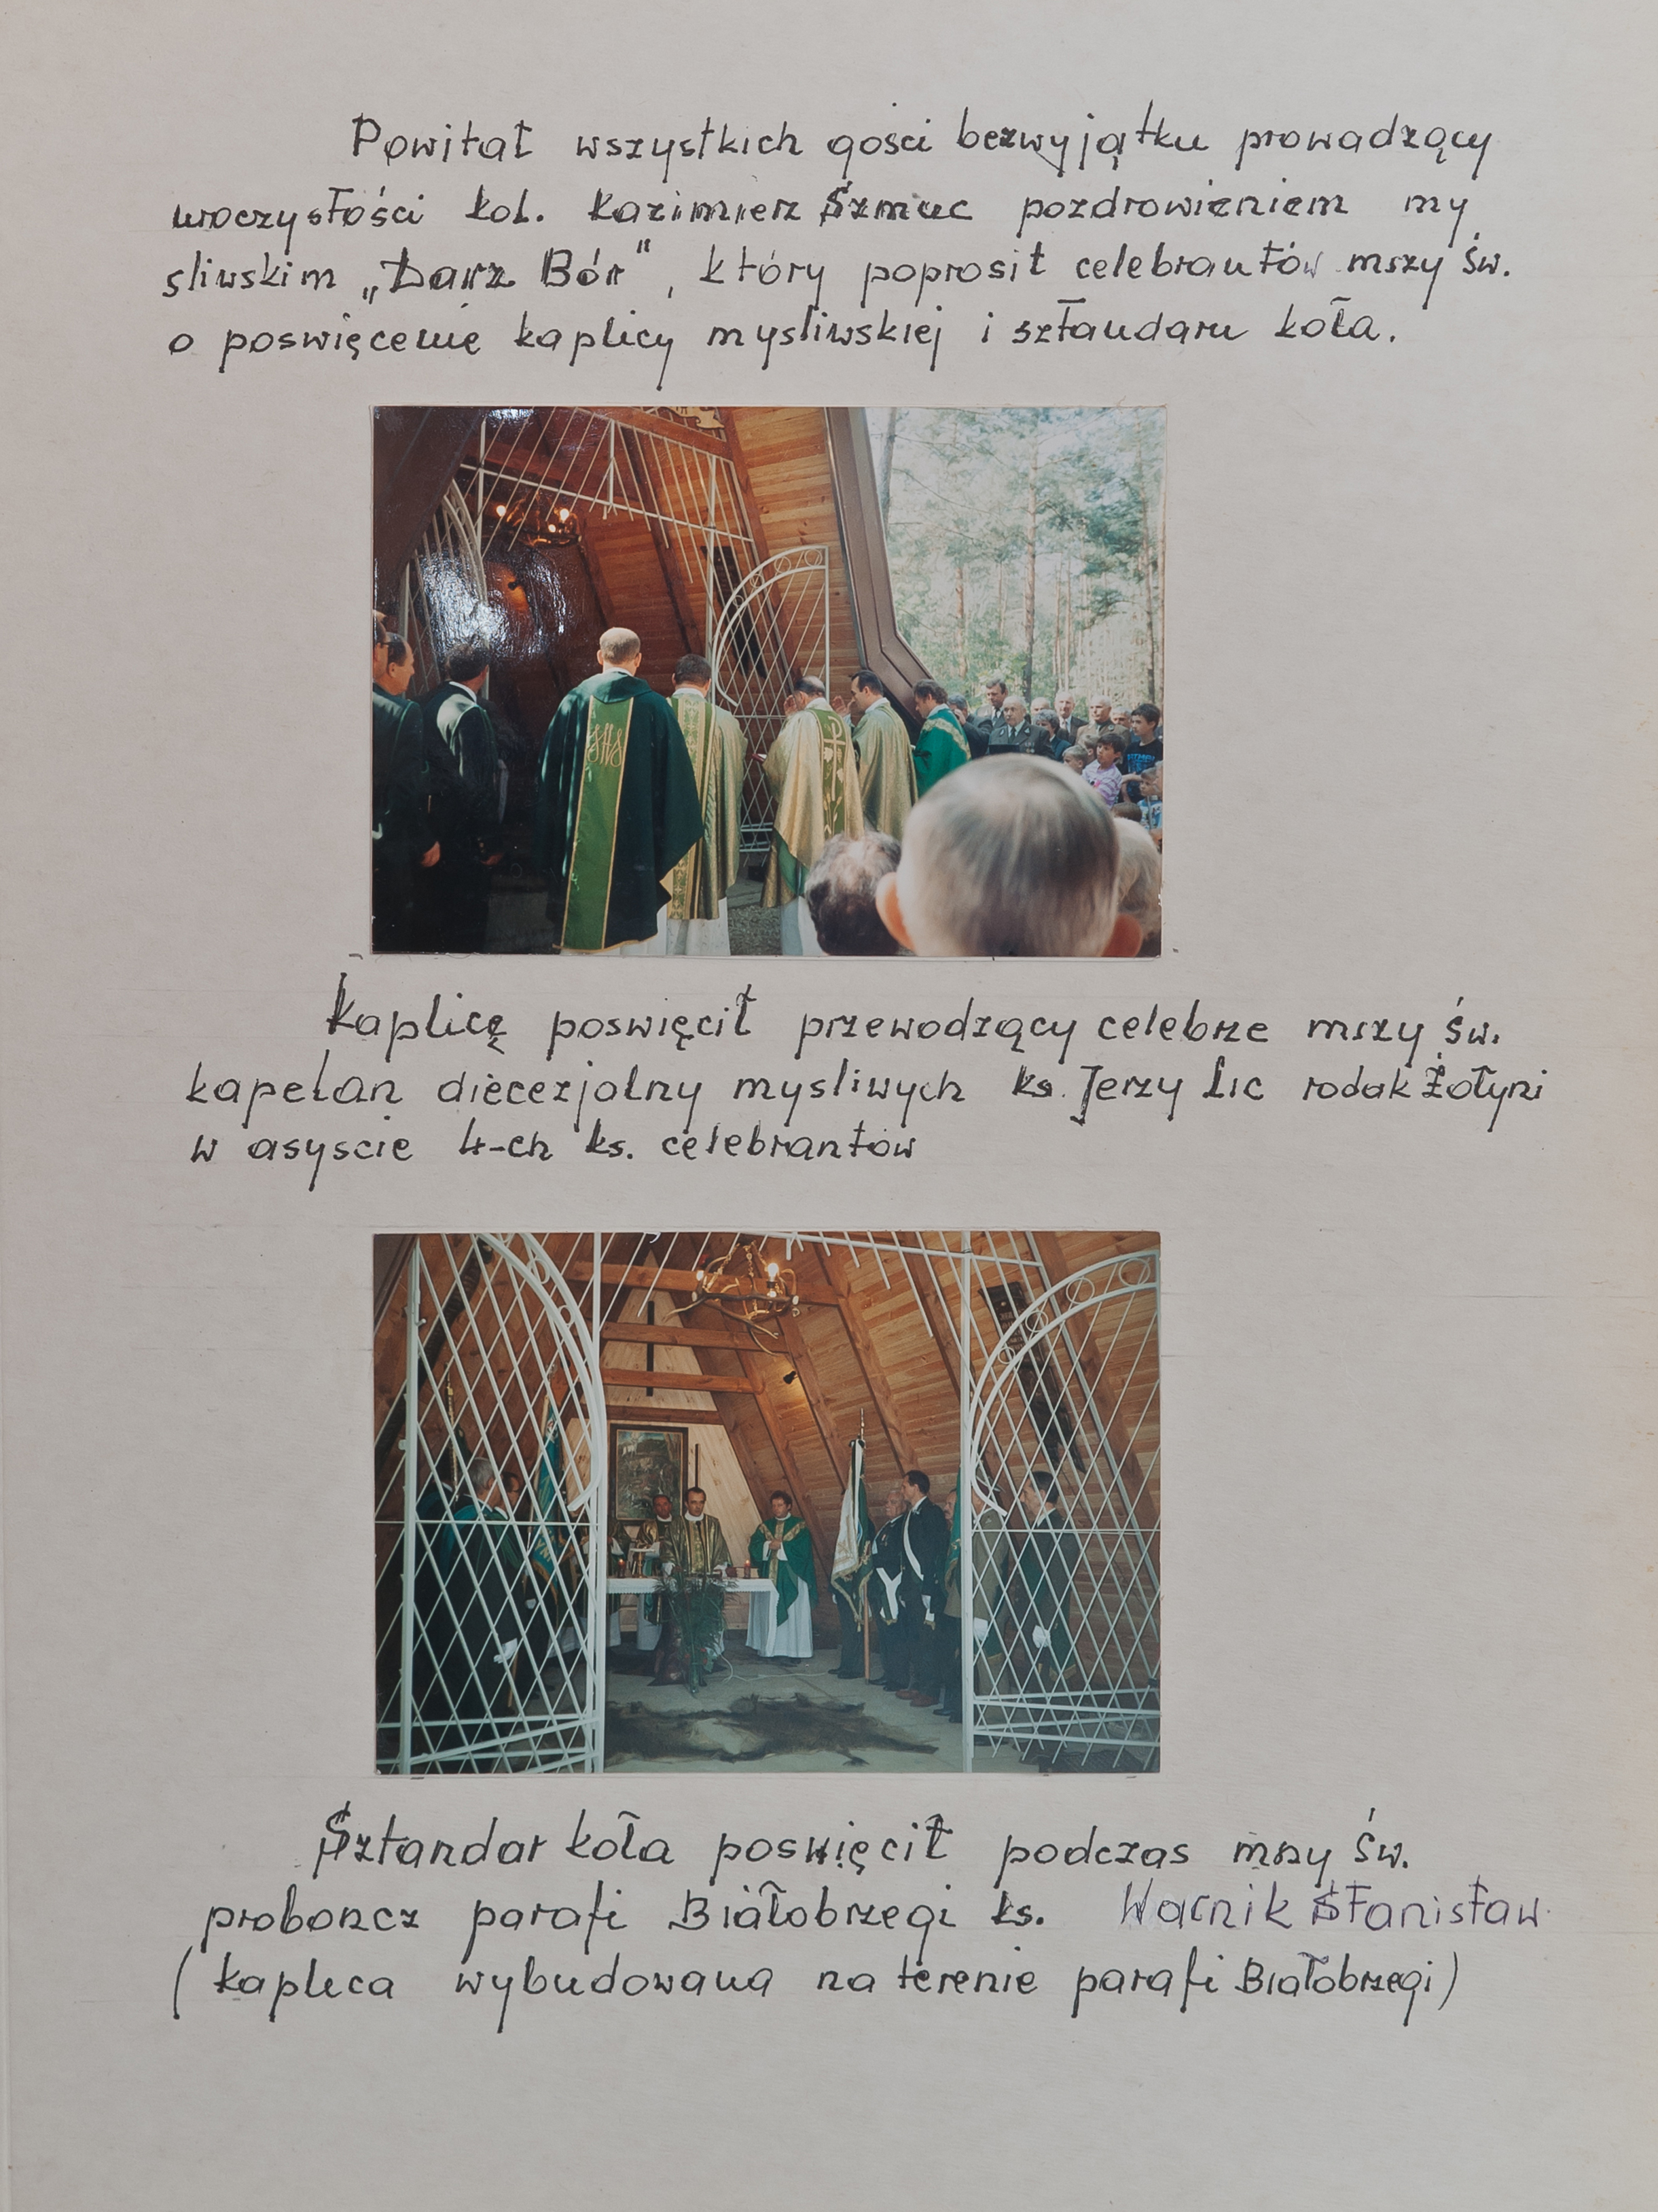 Powitał wszystkich gosci bezwyjątku prowadzący
uroczystości kol. Kazimierz Szmuc pozdrowieniem my
sliwskim „Darz Bór", który poprosił celebrantów mszy św.
o poswięcenie kaplicy mysliwskiej i sztandaru koła.
Kaplicę poswięcił przewodzący celebrze mszy św.
kapelan diecezjalny mysliwych ks. Jerzy Lic rodak Żołyni
w asyscie 4-ch ks. celebrantów
Sztandar koła poswięcił podczas mszy św.
proboncz parafi Białobrzegi ks. Warnik Stanisław
(kaplica wybudowana na terenie parafi Białobrzegi)